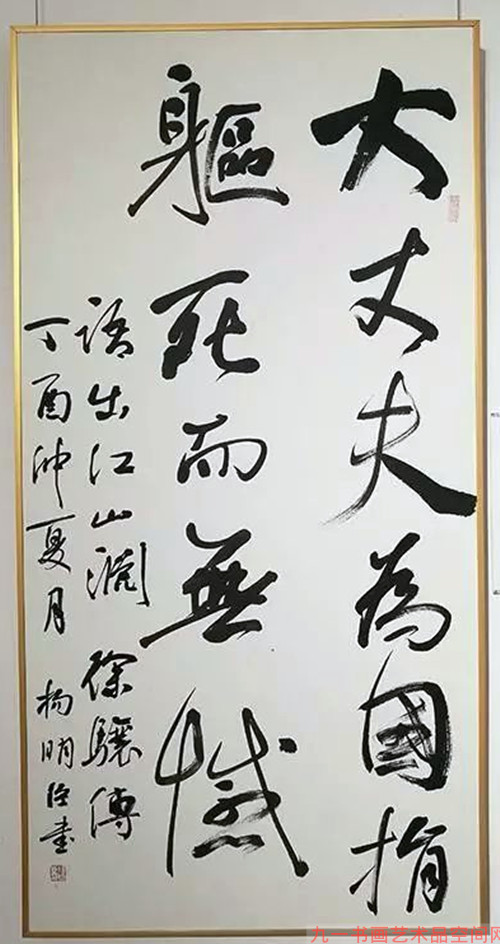 大丈夫為國捐
軀死而無憾
語出江山淵徐驤傳
丁酉仲夏月楊明臣書
九一书画艺术品空间网